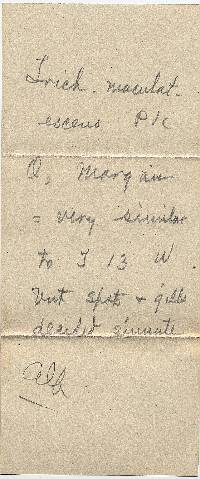 Trich. maculat-
escens Pk
O, Margin
= very similar
to T 13 W
but spots & gills
decided sinuate